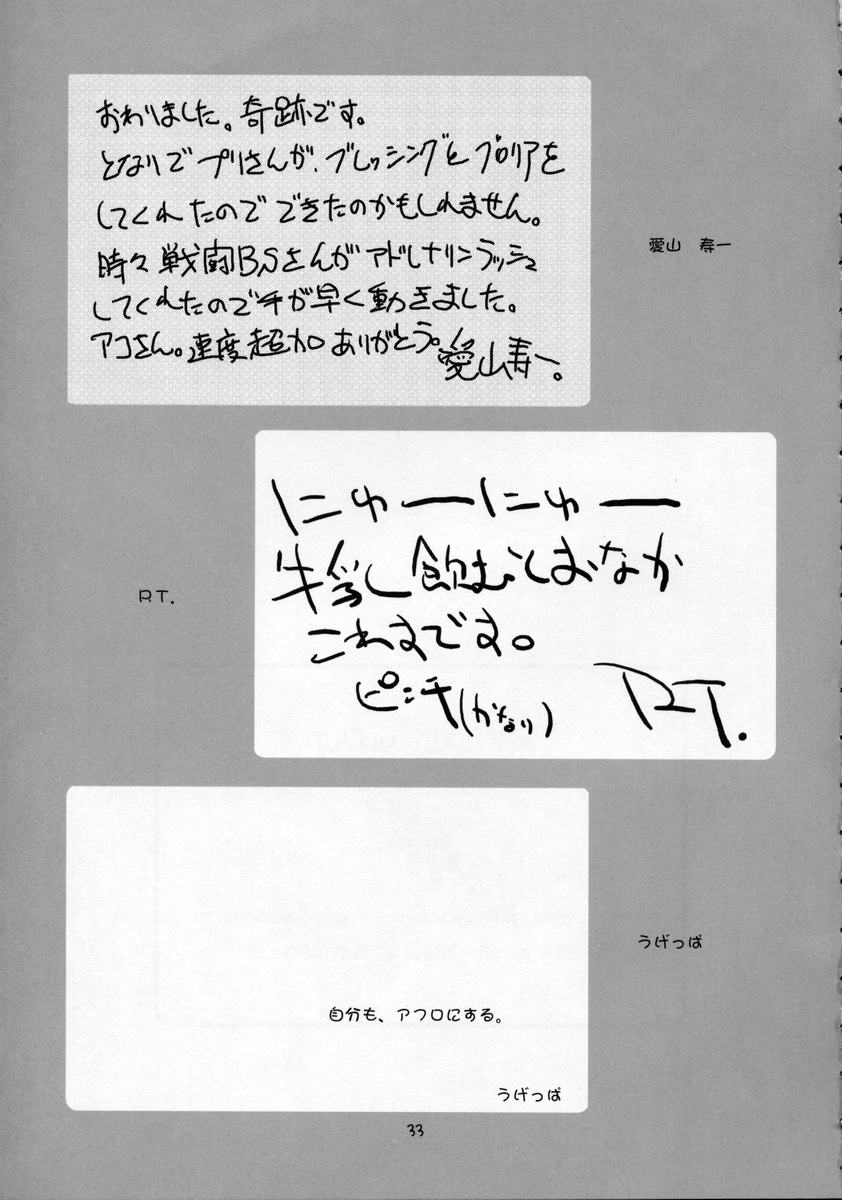 おわりました。奇跡です。
となりでプリさんが、ブレッシングとグロリアを
してくれたのでできたのかもしれません。
時々戦闘BSさんがアドレナリンラッシュ
してくれたので手が早く動きました。
アコさん。速度超加ありがとう。愛山寿一。
愛山　寿一
にゅーにゅー
牛乳し飲むとおなか
こわすです。
ピンチ(かなり)
RT.
RT.
うげっぱ
自分も、アフロにする。
うげっぱ
33